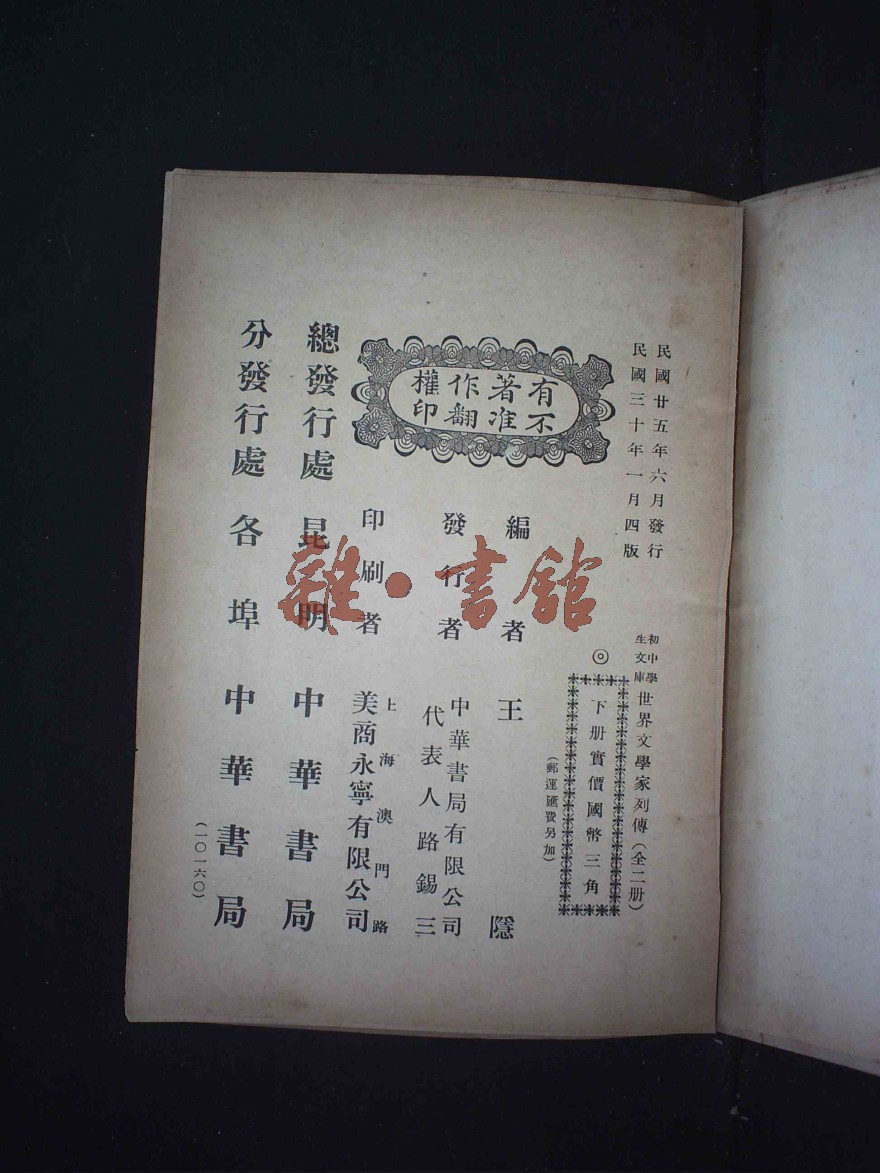 民國廿五年六月發行
民國三十年一月四版
初中學
生文庫
世界文學家列傳(全二册)
◎
下册實價國幣三角
(郵運匯費另加)
有著作權
不准翻印
編者 王隱
發行者 中華書局有限公司
代表人路錫三
印刷者 上海澳門路
美商永寧有限公司
總發行處 昆明中華書局
分發行處 各埠中華書局
(一〇一六〇)
雜·書館